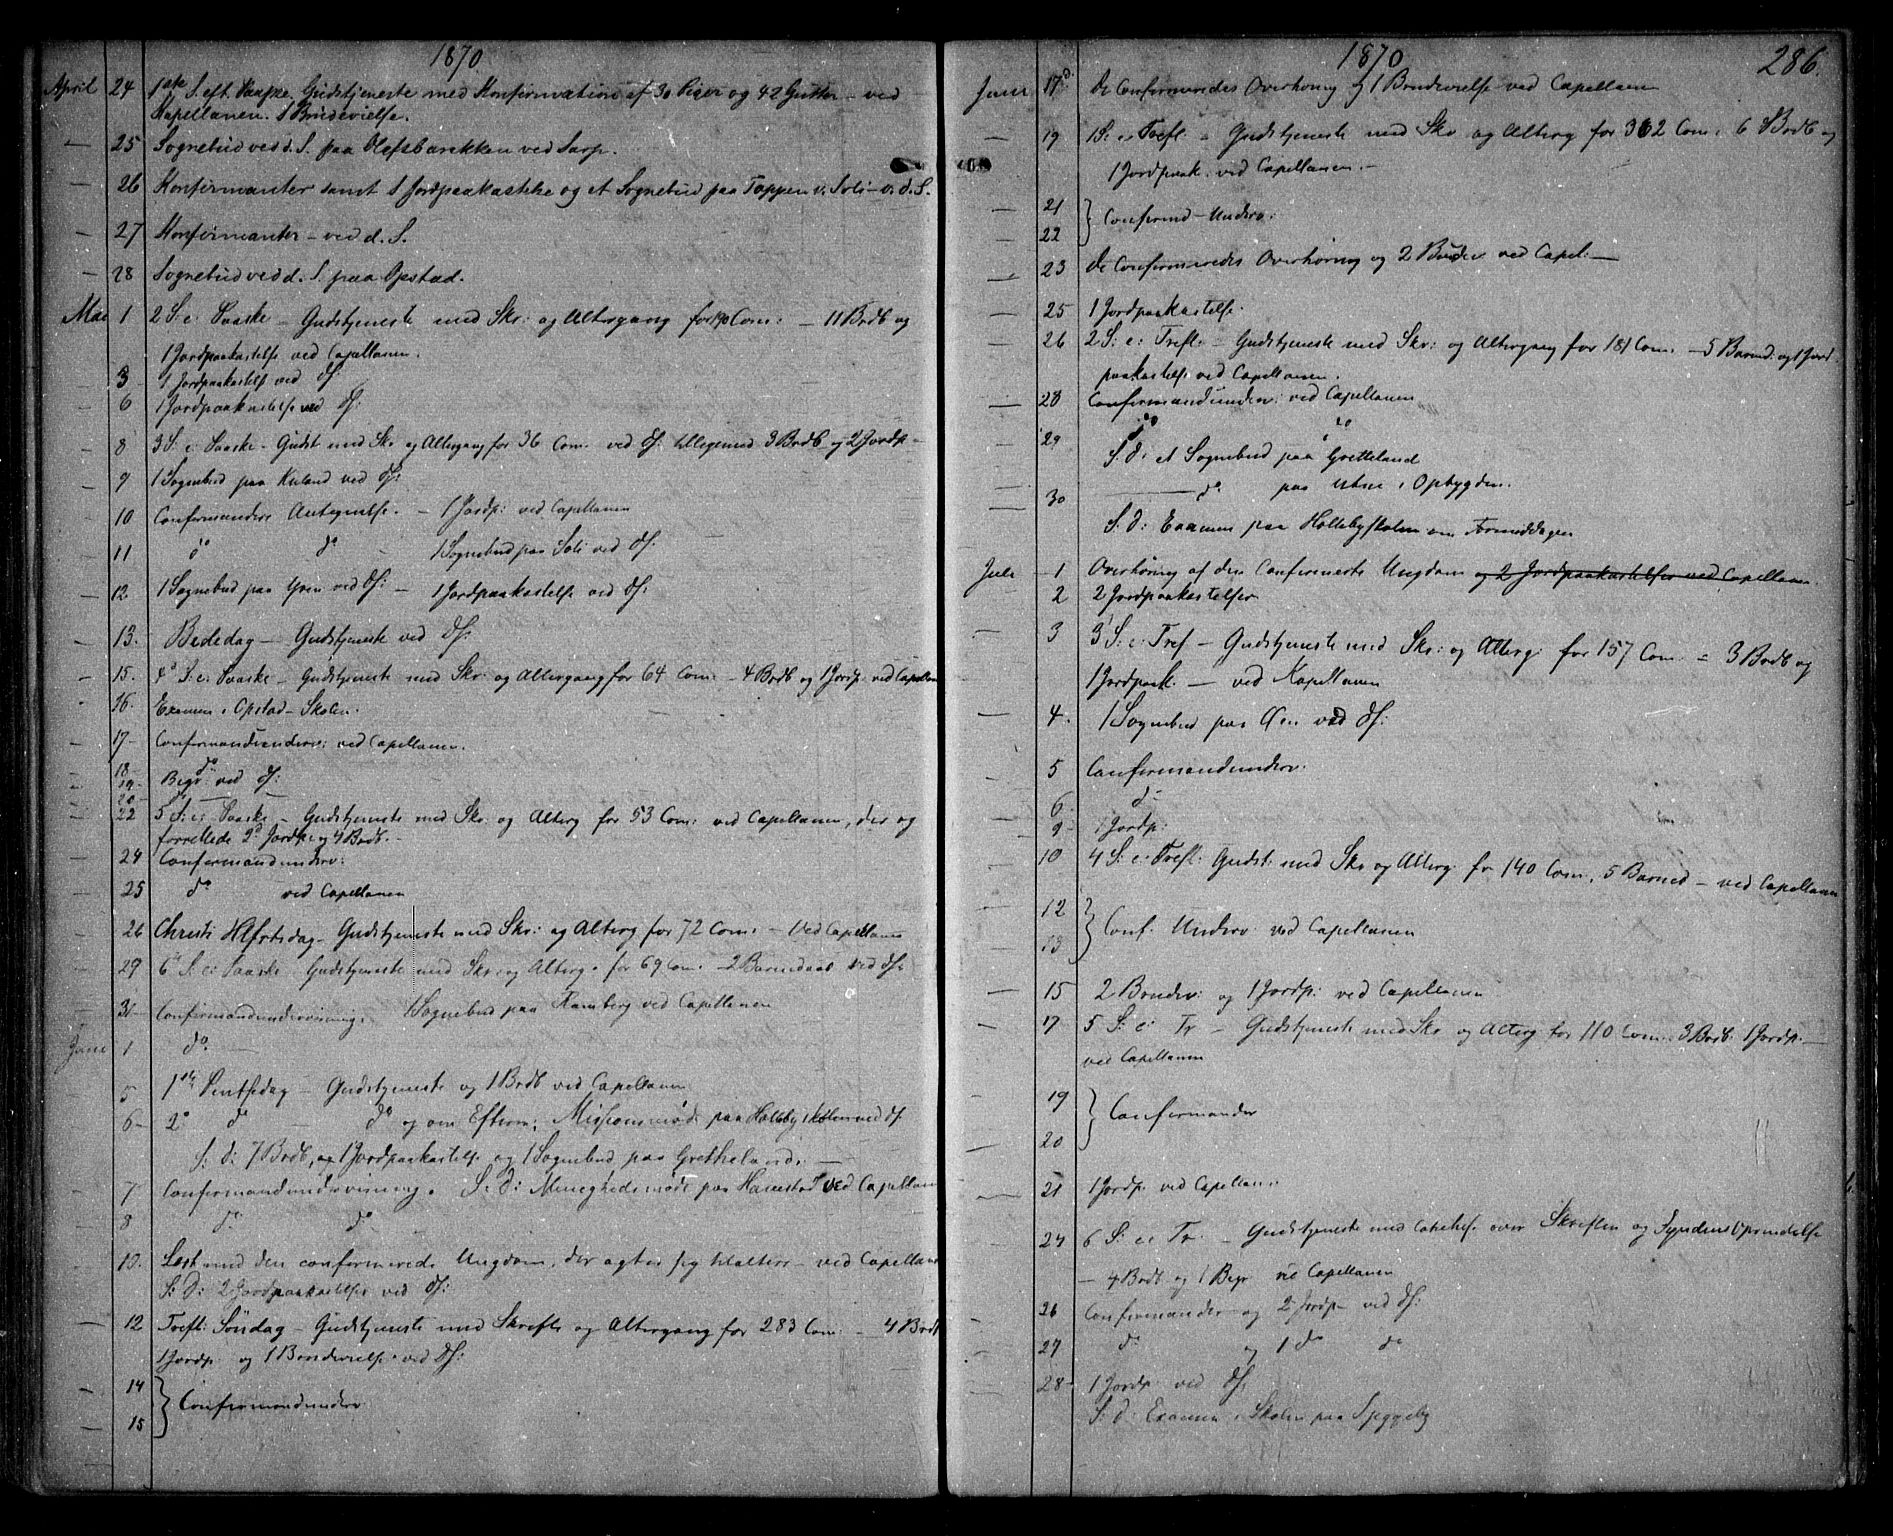 1870
April 24 1ste S. eft. Paaske. Gudstjeneste med Konfirmation af 30 Piger og 42 Gutter – ved
Kapellanen. 1 Brudevielse.
— 25 Sognebud ved d. S. paa Olafsbarakken ved Sarp.
— 26 Konfirmanter samt 1 Jordpaakastelse og et Sognebud paa Tappen v. Soli – v. d. S.
— 27 Konfirmanter – ved d. S.
— 28 Sognebud ved d. S. paa Opstad.
Mai 1 2 S: e: Paaske – Gudstjeneste med Skr: og Altergang for 190 Com: – 11 Brdb og
1 Jordpaakastelse ved Capellanen.
3 1 Jordpaakastelse ved Df:
— 6 1 Jordpaakastelse ved Df:
— 8 3 S: e: Paaske – Gudst med Skr og Altergang for 36 Com: ved Df: tilligemed 3 Brdb og 2 Jordp –
— 9 1 Sognebud paa Kuland ved Df:
— 10 Confirmanders Antegnelse. – 1 Jordp: ved Capellanen
— 11 do do – 1 Sognebud paa Soli ved Df:
— 12 1 Sognebud paa Yven ved Df: – 1 Jordpaakastelse ved Df:
— 13. Bededag – Gudstjeneste ved Df:
— 15. 4de S: e: Paaske – Gudstjeneste med Skr: og Altergang for 64 Com: – 4 Brdb og 1 Jordp: ved Capellan
16. Examen i Opstad – Skolen.
— 17 – Confirmandunderv: ved Capellanen.
18 do
19 – Begr: ved Df:
20 –
— 22 5 S: e: Paaske – Gudstjeneste med Skr: og Alterg for 53 Com: ved Capellanen, der og
forrettede 2 Jordp: og 4 Brdb. –
— 24 Confirmandunderv:
— 25 do ved Capellanen
— 26 Christi Hfartsdag – Gudstjeneste med Skr: og Alterg for 72 Com: – Ved Capellanen
— 29 6 S: e: Paaske – Gudstjeneste med Skr og Alterg. for 69 Com: – 2 Barnedaab ved Df:
— 31 – Confirmandundervisning. 1 Sognebud paa Ramberg ved Capellanen
Juni 1 do –
5 1ste Pintsedag – Gudstjeneste og 1 Brdb ved Capellanen
— 6 – 2 do do og om Efterm: Missionsmøde paa Hollebyskolen ved Df
S: D: 7 Brdb, og 1 Jordpaakastelse og 1 Sognebud paa Grethelands. –
— 7 Confirmandundervisning. S: D: Menighedsmøde paa Hauestad ved Capellan
— 8 do do
— 10. Læst med den confirmerede Ungdom, ved Capellan
S: D: 2 Jordpaakastelse ved Df:
— 12 Trefl: Söndag – Gudstjeneste med Skrifte og Altergang for 283 Com: – 4 Brdb
1 Jordp og 1 Brudevielse ved Df:
— 14
— 15 } Confirmandunderv
1870 286.
Juni 17 De Confirmeredes Overhöring og 1 Brudevielse ved Capellanen
— 19 1 S: e: Trefl. – Gudstjeneste med Skr og Alterg for 362 Com: 6 Brdb og
1 Jordpaak: ved Capellanen. –
— 21
— 22 } Confirmd – Underv:
— 23 De Confirmeredes Overhöring og 2 Brudev ved Capel: –
— 25 1 Jordpaakastelse.
— 26 2 S: e: Trefl. – Gudstjeneste med Skr: og Altergang for 181 Com: – 5 Barned: og 1 Jord-
paakastelse ved Capellanen.
— 28 Confirmandunderv: ved Capellanen
— 29 do do
S: D: et Sognebud paa Gretteland
30 — do paa Utne i Opbygden.
S: D: Examen paa Hollebyskolen om Formiddagen
Juli – 1 Overhöring af den Confirmerte Ungdom og 2 Jordpaakastelser ved Capellanen.
2 2 Jordpaakastelser
— 3 3 S: e: Tref – Gudstjeneste med Skr: og Alterg: for 157 Com = 3 Brdb og
1 Jordpaak. – ved Kapellanen
— 4. 1 Sognebud paa Öen ved Df:
— 5 Confirmandunderv.
— 6 do
— 9 – 1 Jordp:
— 10 4 S: e: Trefl: Gudst: med Skr og Alterg for 140 Com, 5 Barned – ved Capellanen
12
13 } Conf. Underv ved Capellanen
— 15 2 Brudev: og 1 Jordp: ved Capellanen
— 17 5 S: e: Tr – Gudstjeneste med Skr og Alterg for 110 Com. 3 Brdb. 1 Jordp. –
ved Capellanen
— 19
— 20 } Confirmander
— 21 1 Jordp. ved Capellan:
— 24 6 S: e: Tr. – Gudstjeneste med Catehese over Skriften og Syndens Oprindelse
– 4 Brdb og 1 Begr ved Capellanen
26 Confirmander og 2 Jordp – ved Df:
— 27 do og 1 do do
— 28 – 1 Jordp. ved Df:
S: D: Examen i Skolen paa Speggeby